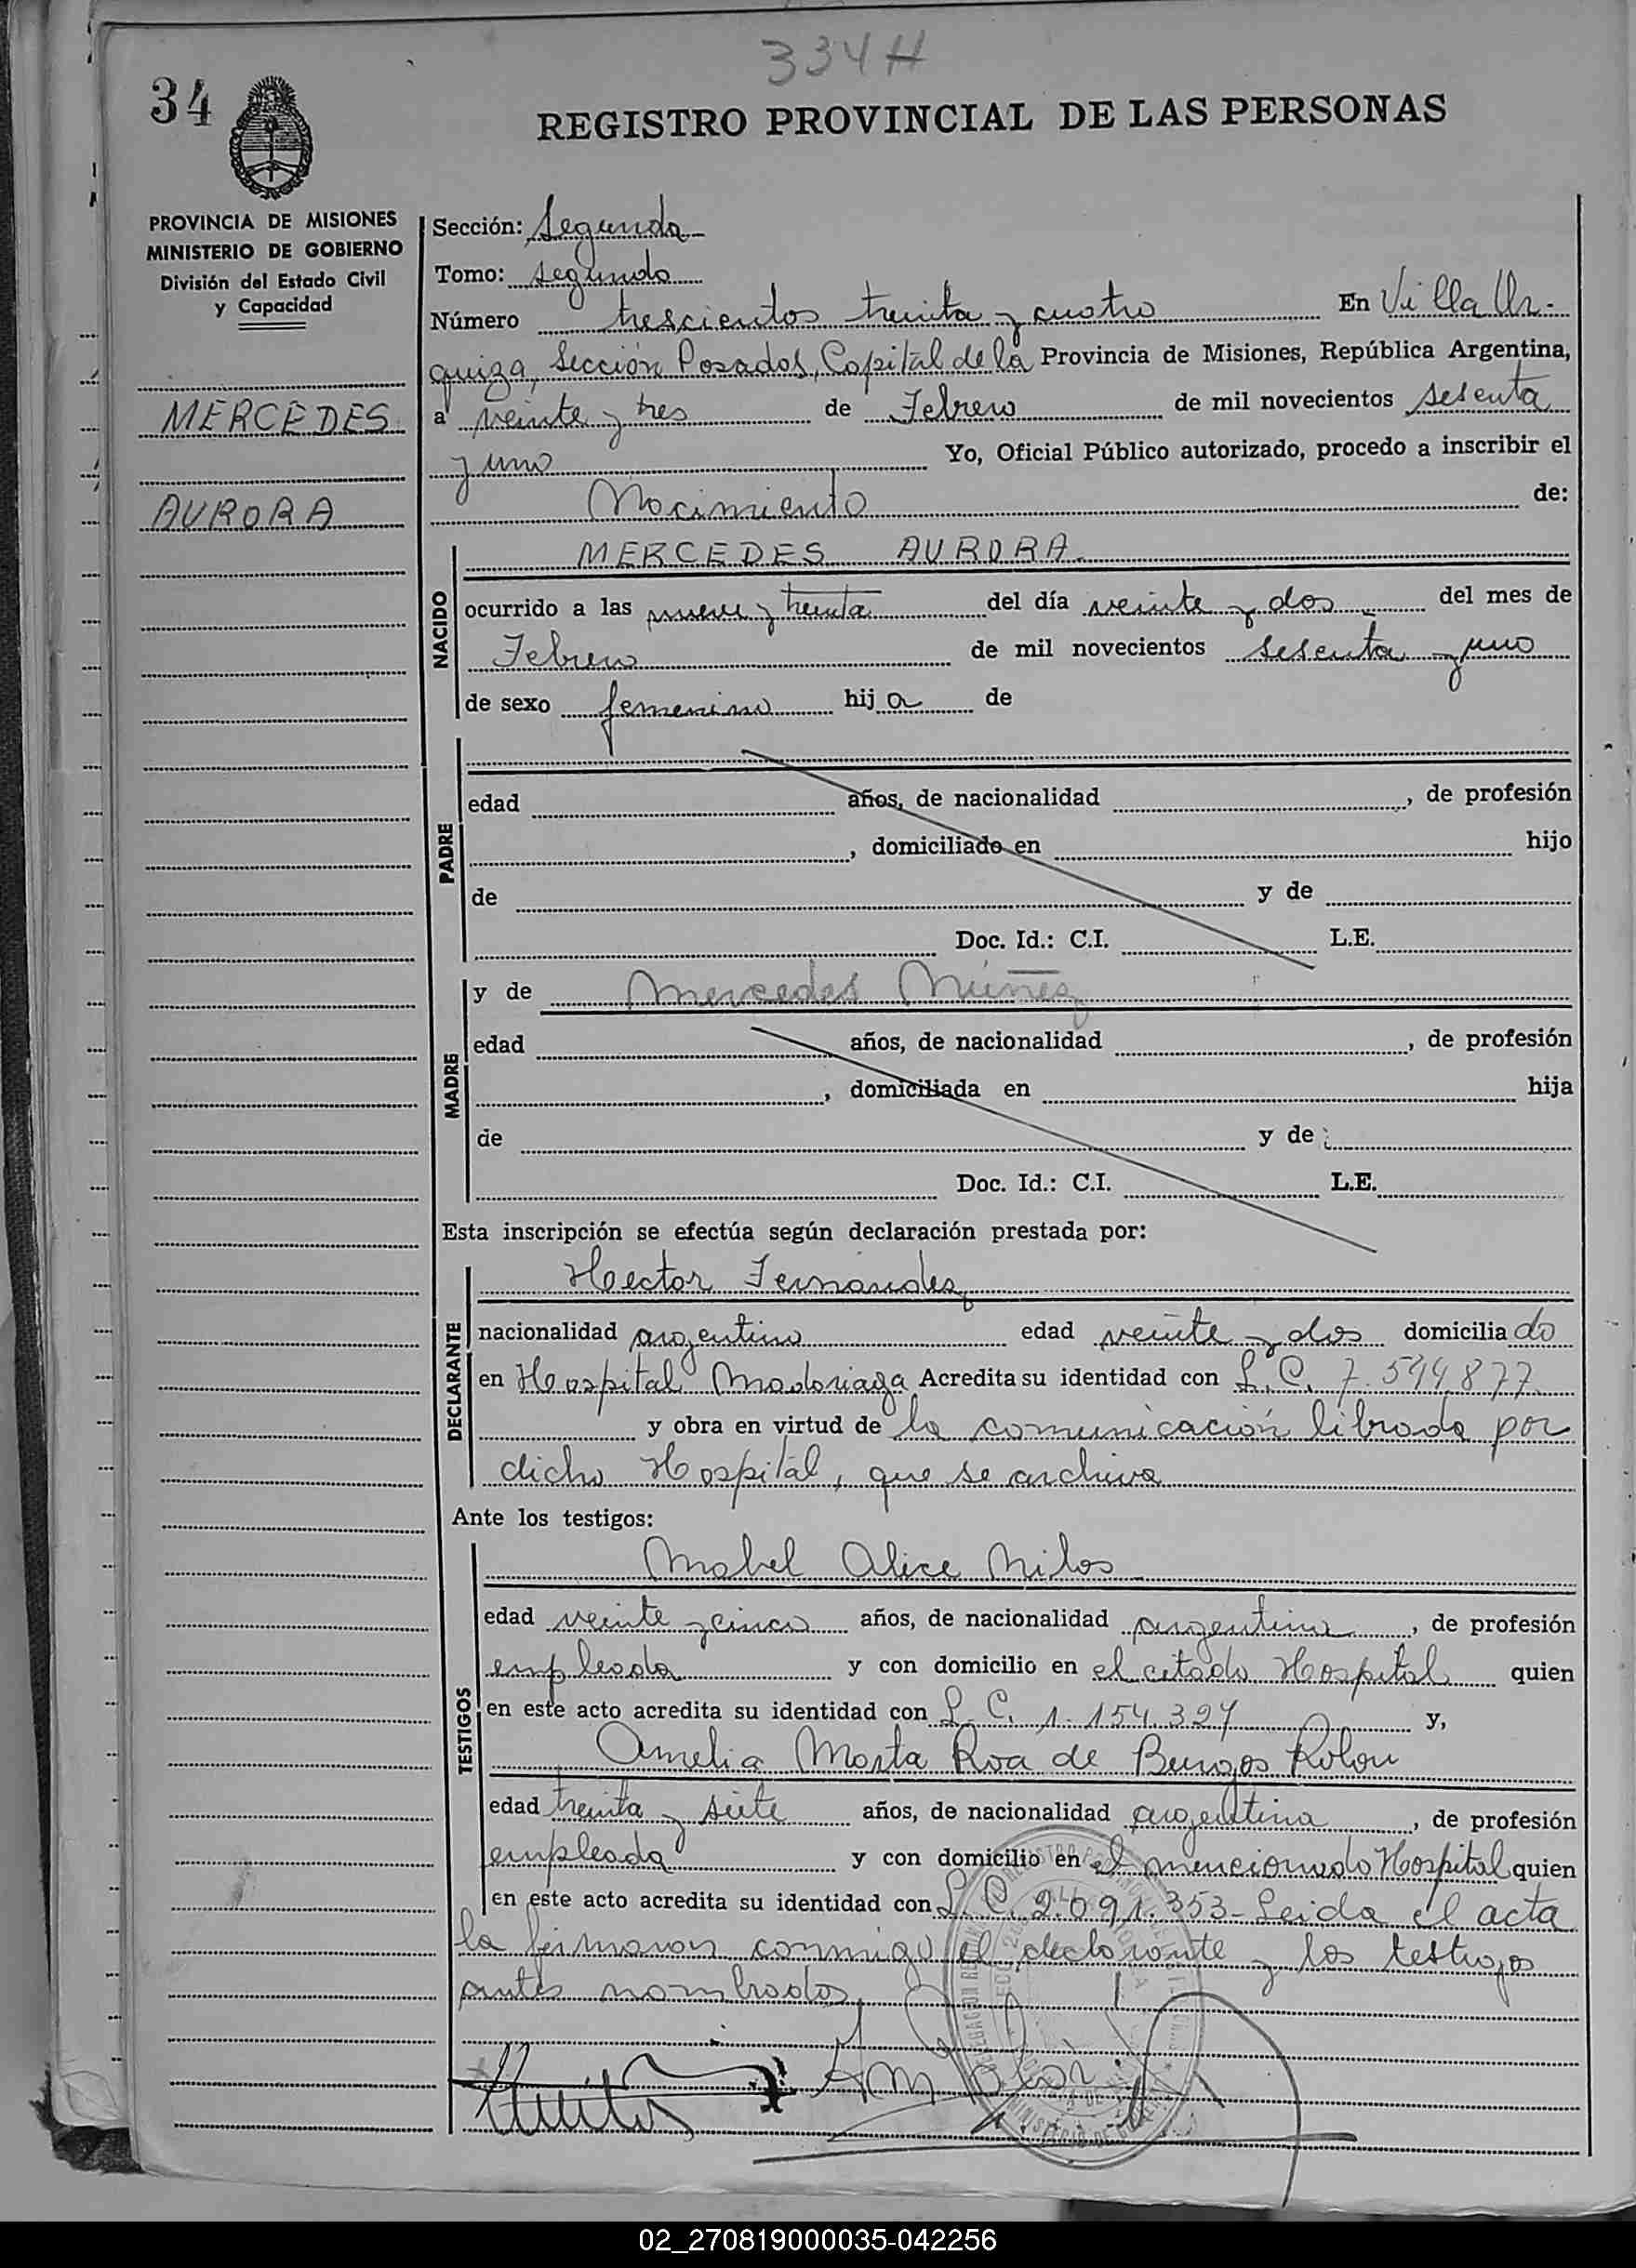 334 H
34
REGISTRO PROVINCIAL DE LAS PERSONAS
PROVINCIA DE MISIONES
MINISTERIO DE GOBIERNO
División del Estado Civil
y Capacidad
MERCEDES
AURORA
Sección: Segunda
Tomo: segundo
Número trescientos treinta y cuatro En Villa Ur-
quiza, Sección Posadas, Capital de la Provincia de Misiones, República Argentina,
a veinte y tres de Febrero de mil novecientos sesenta
y uno Yo, Oficial Público autorizado, procedo a inscribir el
Nacimiento de:
NACIDO
MERCEDES AURORA
ocurrido a las nueve y treinta del día veinte y dos del mes de
Febrero de mil novecientos sesenta y uno
de sexo femenino hija de
PADRE
edad años, de nacionalidad , de profesión
, domiciliado en hijo
de y de
Doc. Id.: C.I. L.E.
MADRE
y de Mercedes Núñez
edad años, de nacionalidad , de profesión
, domiciliada en hija
de y de
Doc. Id.: C.I. L.E.
Esta inscripción se efectúa según declaración prestada por:
DECLARANTE
Hector Fernandez
nacionalidad argentino edad veinte y dos domiciliado
en Hospital Madariaga Acredita su identidad con L.C. 7.544.877
y obra en virtud de la comunicación librada por
dicho Hospital, que se archiva
Ante los testigos:
TESTIGOS
Mabel Alice Milos
edad veinte y cinco años, de nacionalidad argentina, de profesión
empleada y con domicilio en el citado Hospital quien
en este acto acredita su identidad con L.C. 1.154.327 y,
Amelia Marta Roa de Burgos Rolon
edad treinta y siete años, de nacionalidad argentina, de profesión
empleada y con domicilio en el mencionado Hospital quien
en este acto acredita su identidad con L.C. 2.691.353- Leida el acta
la firmaron conmigo el declarante y los testigos
antes nombrados.
02_270819000035-042256